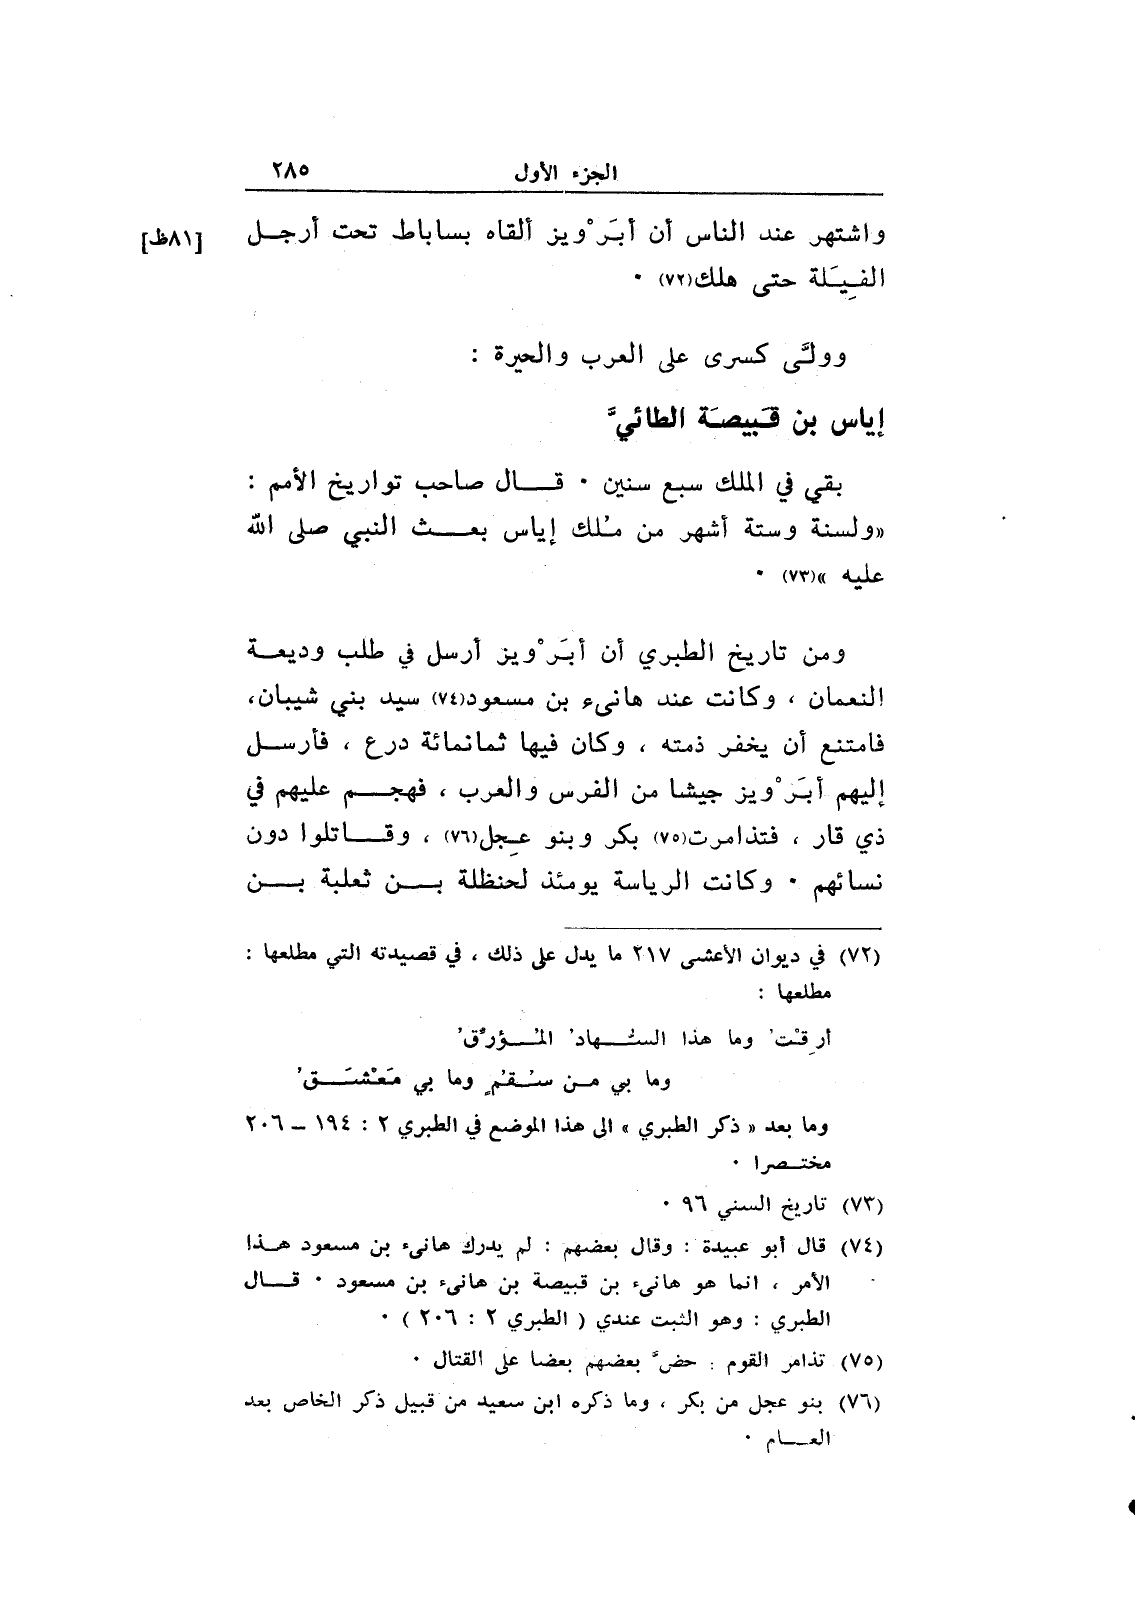 الجزء الأول ٢٨٥
واشتهر عند الناس أن أبَرْويز ألقاه بساباط تحت أرجل [٨١ظ]
الفِيَلة حتى هلك(٧٢) ٠
وولَّى كسرى على العرب والحيرة :
إياس بن قَبيصَة الطائيّ
بقي في الملك سبع سنين ٠ قال صاحب تواريخ الأمم :
«ولسنة وستة أشهر من مُلك إياس بعث النبي صلى الله
عليه »(٧٣) ٠
ومن تاريخ الطبري أن أبَرْويز أرسل في طلب وديعة
النعمان ، وكانت عند هانىء بن مسعود(٧٤) سيد بني شيبان،
فامتنع أن يخفر ذمته ، وكان فيها ثمانمائة درع ، فأرسل
إليهم أبَرْويز جيشا من الفرس والعرب ، فهجم عليهم في
ذي قار ، فتذامرت(٧٥) بكر وبنو عِجل(٧٦) ، وقاتلوا دون
نسائهم ٠ وكانت الرياسة يومئذ لحنظلة بن ثعلبة بن
(٧٢) في ديوان الأعشى ٢١٧ ما يدل على ذلك ، في قصيدته التي مطلعها :
مطلعها :
أرِقْتُ وما هذا السُّهادُ المُؤرِّقُ
وما بي من سُقْمٍ وما بي مَعْشَقُ
وما بعد « ذكر الطبري » الى هذا الموضع في الطبري ٢ : ١٩٤ ــ ٢٠٦
مختصرا ٠
(٧٣) تاريخ السني ٩٦ ٠
(٧٤) قال أبو عبيدة : وقال بعضهم : لم يدرك هانىء بن مسعود هذا
الأمر ، انما هو هانىء بن قبيصة بن هانىء بن مسعود ٠ قال
الطبري : وهو الثبت عندي ( الطبري ٢ : ٢٠٦ ) ٠
(٧٥) تذامر القوم : حضَّ بعضهم بعضا على القتال ٠
(٧٦) بنو عجل من بكر ، وما ذكره ابن سعيد من قبيل ذكر الخاص بعد
العام ٠